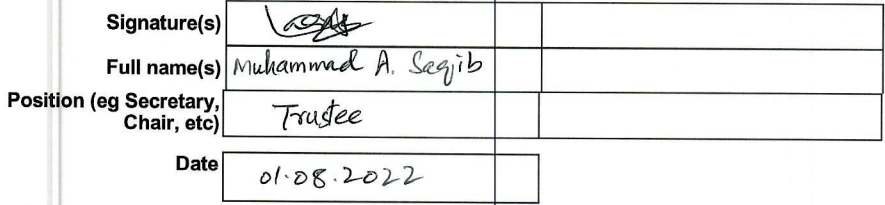 Signature(s)
Full name(s) Muhammad A. Saqib
Position (eg Secretary,
Chair, etc) Trustee
Date 01.08.2022